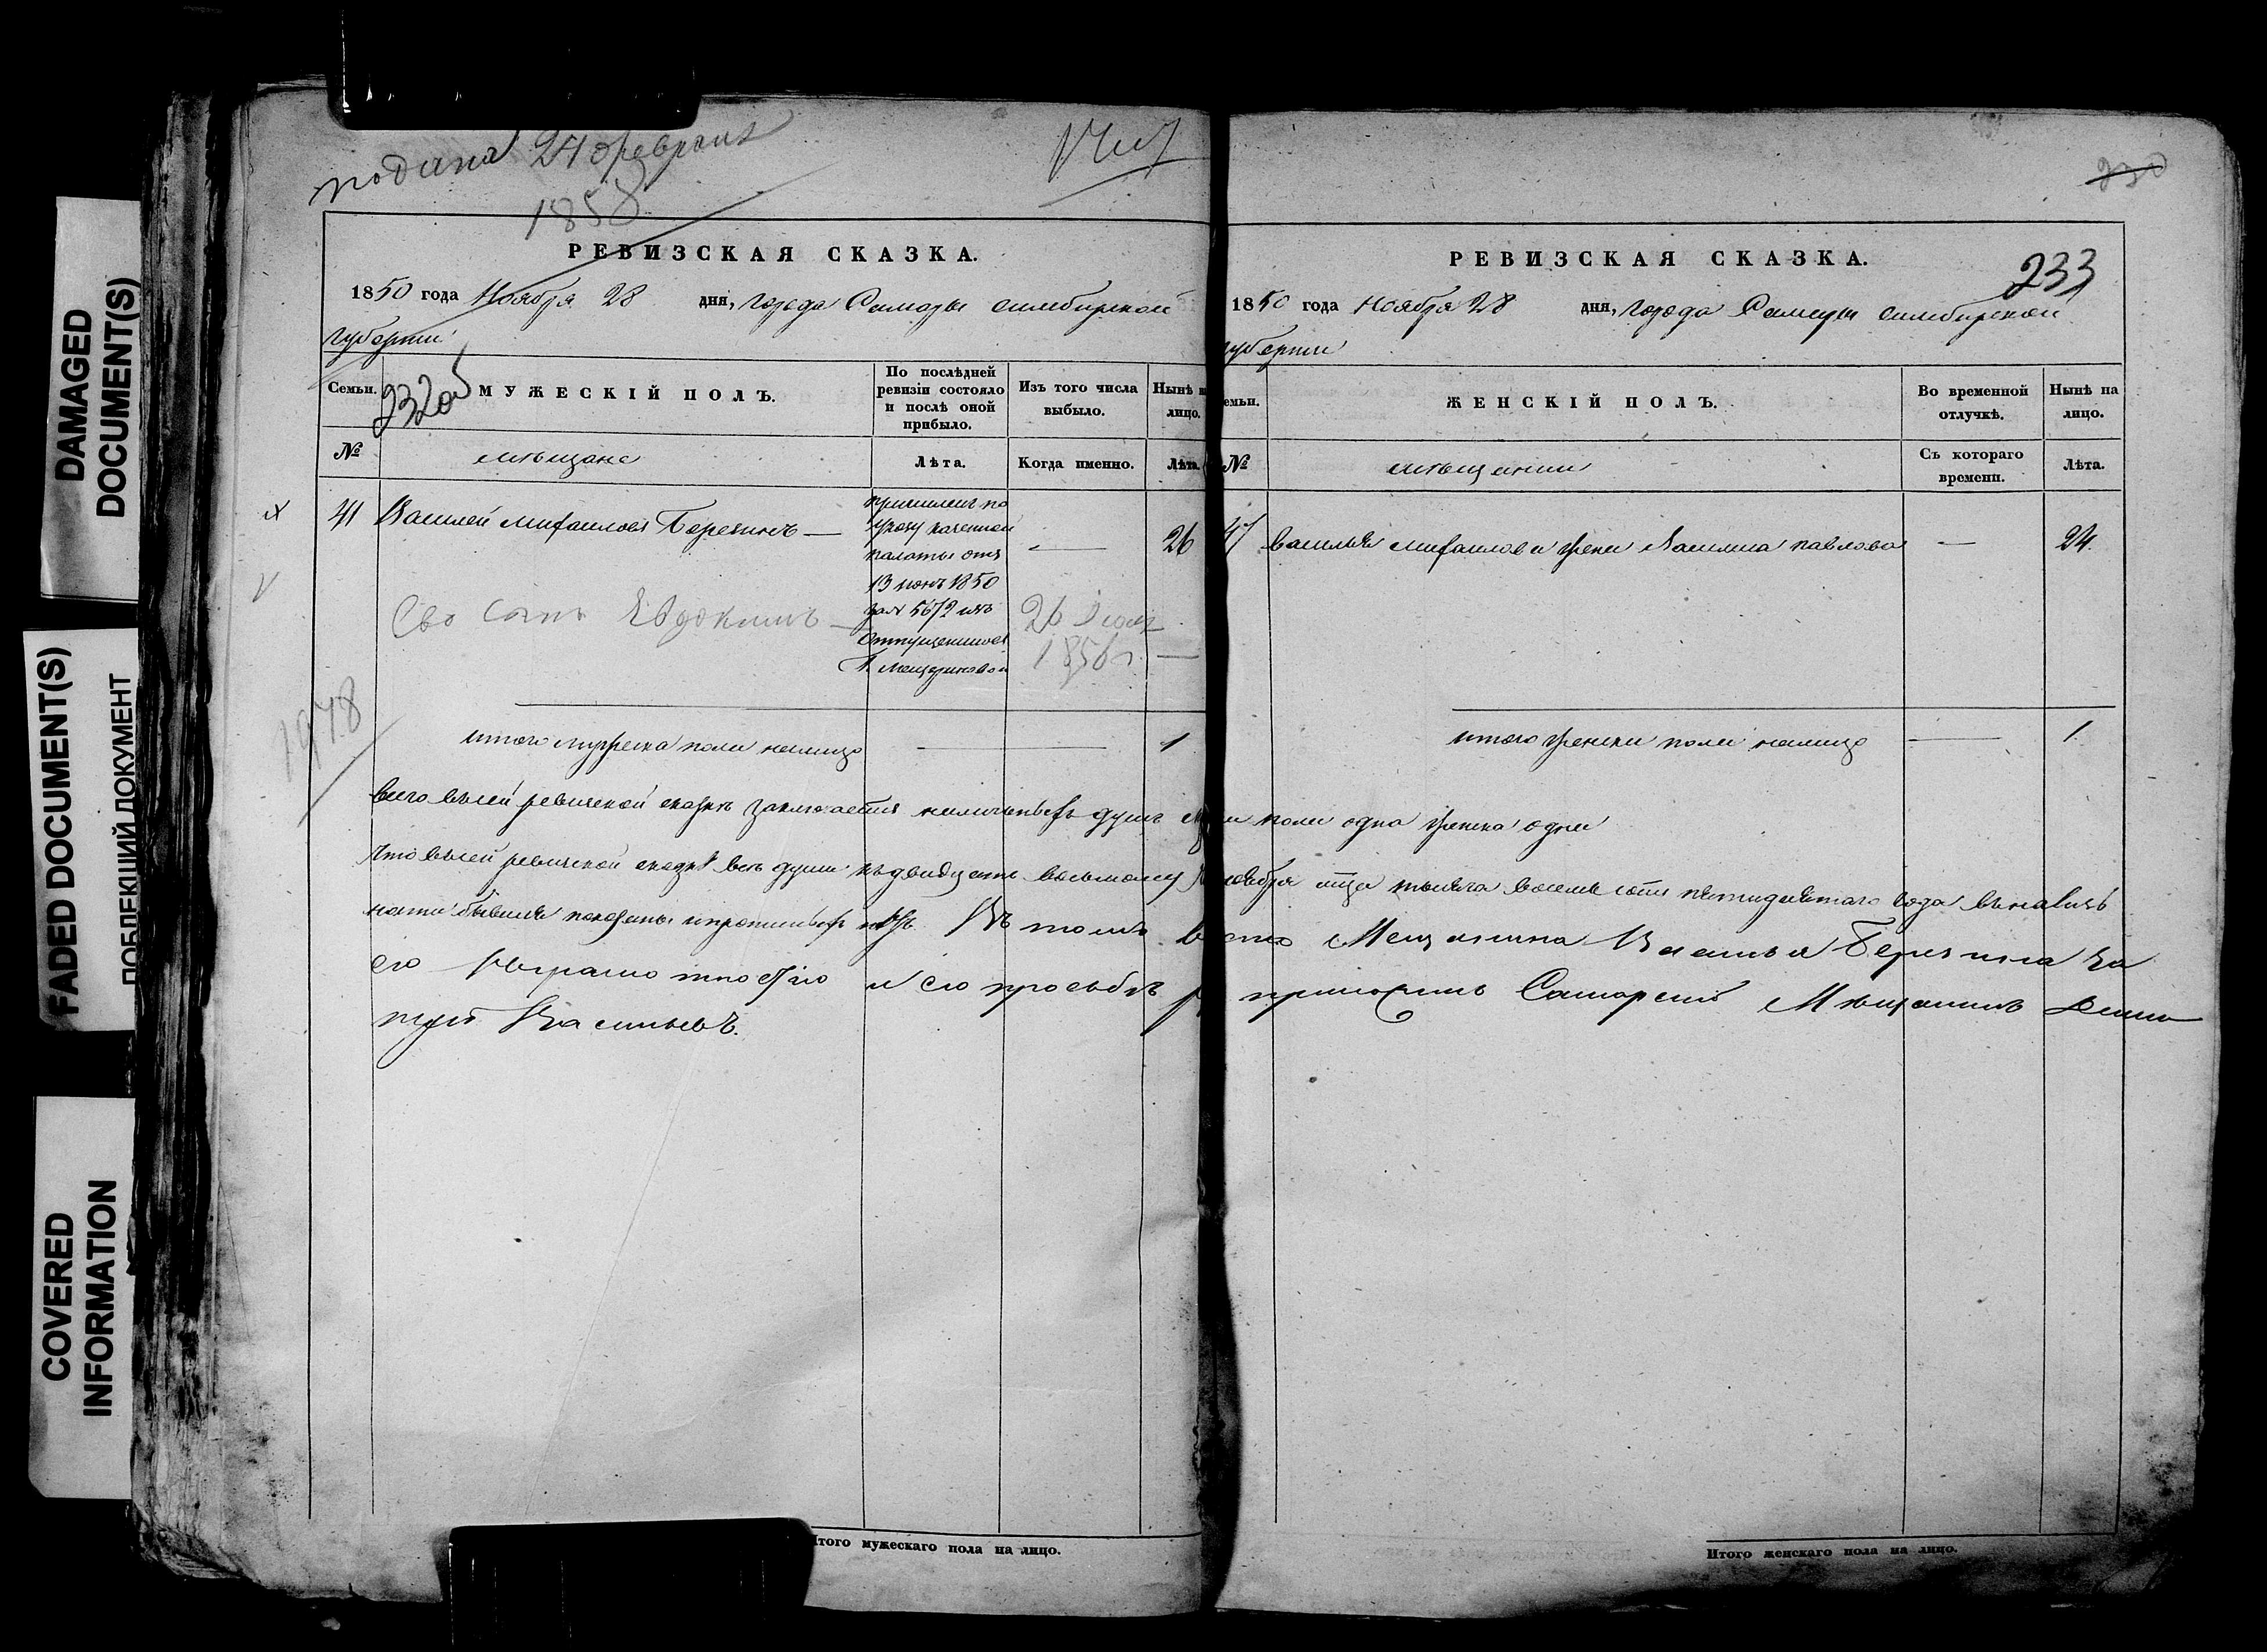 DAMAGED
DOCUMENT(S)
FADED DOCUMENT(S)
ПОБЛЕКШИЙ ДОКУМЕНТ
COVERED
INFORMATION
подана 24 февраля
1858
РЕВИЗСКАЯ СКАЗКА.
1850 года Ноября 28 дня, города Самары симбирской
губернии
Семьи.
232об
МУЖЕСКІЙ ПОЛЪ.
По послѣдней
ревизіи состояло
и послѣ оной
прибыло.
Изъ того числа
выбыло.
Нынѣ на
лицо.
№
мѣщане
Лѣта.
Когда именно.
Лѣта.
41 Василей михаиловъ Березинъ — 26
причислен по
указу казенной
палаты отъ
13 июнъ 1850
за № 5672 изъ
отпущенниковъ
Мещериновой
Его сынъ Евдокимъ —
26 Июля
1856 г. —
1978
итого мужеска пола налицо — 1
РЕВИЗСКАЯ СКАЗКА.
230
233
1850 года Ноября 28 дня, города Самары симбирской
губернии
Семьи.
ЖЕНСКІЙ ПОЛЪ.
Во временной
отлучкѣ.
Нынѣ на
лицо.
№
мѣщанки
Съ котораго
времени.
Лѣта.
василья михаилова жена Василиса павлова — 24.
итого женска пола налицо — 1
всего въсей ревиской сказкѣ заключается наличныхъ душъ пола одна женска одна
Что въсей ревиской сказкѣ всѣ души къдвадцать восьмому Ноября тысяча восемь сотъ пятидесятаго года въналич
ности бывшия показаны ипрописныхъ нѣтъ Въ томъ вместо Мещанина Василья Березина за
его неграмотностію и его прозьбѣ приложилъ Самарский Мѣщанинъ
Васильевъ.
Итого мужескаго пола на лицо.
Итого женскаго пола на лицо.